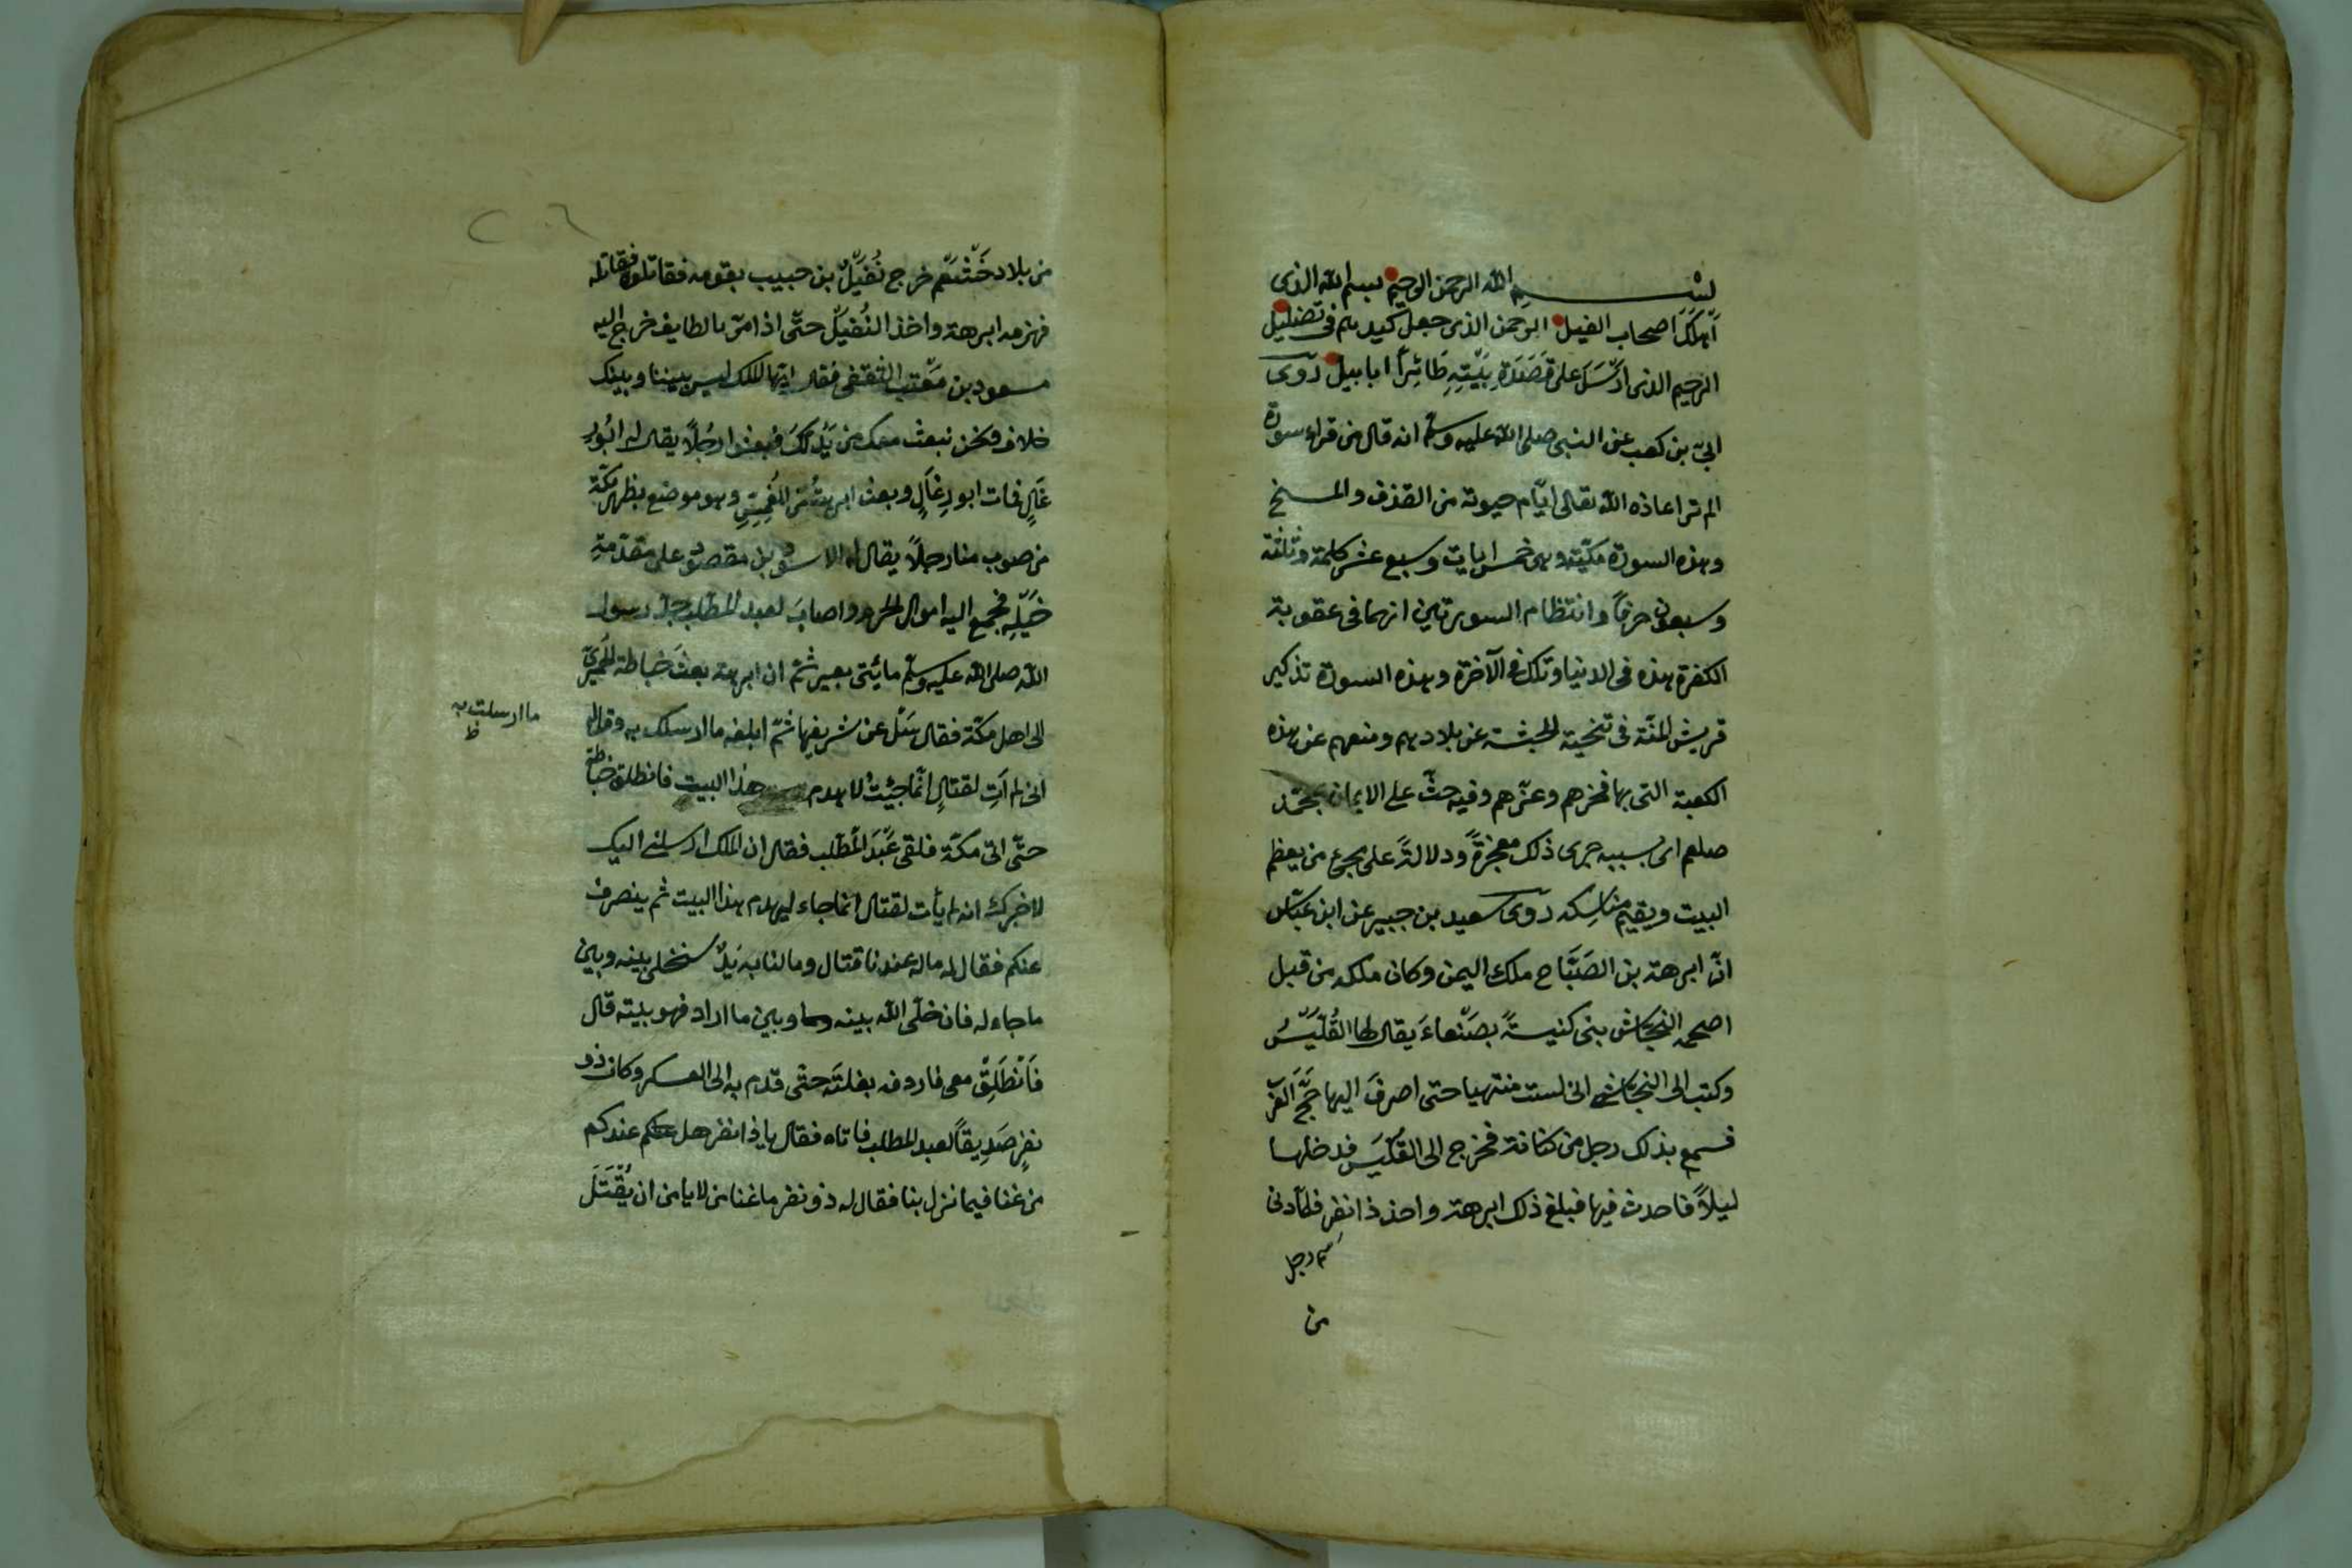 بسم الله الرحمن الرحيم بسم الله الذى
اَهلَكَ اصحاب الفيل الرحمن الذى جعل كيدهم فى تضليل
الرحيم الذى اَرْسَلَ على قَصَدَةِ بَيْتِهِ طَائِراً ابابيل روى
ابىّ بن كعب عن النبى صلى الله عليه وسلم انه قال من قراء سورة
الم تر اعاذه الله تعالى ايّام حيوته من القذف والمسخ
وهذه السورة مكيّة وهى خمس ايات وسبع عشر كلمة وثلثة
وسبعون حرفاً وانتظام السورتين انهما فى عقوبة
الكفرة هذه فى الدنيا وتلك فى الآخرة وهذه السورة تذكير
قريش المنّة فى تنحية الحبشة عن بلادهم ومنعهم عن هذه
الكعبة التى بها فخرهم وعزّهم وفيه حثّ على الايمان بمحمّد
صلعم اى بسببه جرى ذلك معجزةً ودلالةً على مجئ من يعظم
البيت ويقيم مناسكه روى سعيد بن جبير عن ابن عبّاس
انّ ابرهة بن الصَبّاح ملك اليمن وكان ملكه من قبل
اصحمة النجاش بنى كنيسةً بصَنْعاءَ يقال لها القُلَّيْسُ
وكتب الى النجاشى انى لست منتهيا حتى اصرفَ اليها حَجَّ العَرَب
فسمع بذلك رجل من كنانة فخرج الى القُلَّيْسَ فدخلها
ليلاً فاحدث فيها فبلغ ذلك ابرهة واخذ ذا نفرٍ فلمّا دنى
اسم رجل
من
٢٠٦
من بلاد خَثْعَم خرج نُفَيْلُ بن حبيب بقومه فقاتلوه فقاتله
فهزمه ابرهة واخذ النُفيل حتّى اذا مرّ بالطايف خرج اليه
مسعود بن مَعتب الثقفى فقال ايّها الملك ليس بيننا وبينك
خلاف ونحن نبعث معك من يَدُلكَ فبعثوا رجُلاً يقال له ابُورِ
غَالٍ فمات ابو رِغَالٍ وبعث ابرهة من المُغَمِسِ وهو موضع بظهر مكّة
من صوب منا رجلاً يقال له الاسود بن مقصود على مقدّمةِ
خَيْلِه فجمع اليه اموال الحرم واصابَ لعبد المطّلب جدّ رسول
الله صلى الله عليه وسلّم مائتى بعير ثمّ ان ابرهة بعثَ حناطة الحميرىّ
الى اهل مكّة فقال سَئل عن شريفها ثمّ ابلغه ما ارسلك به وقال له
انى لم آتِ لقتالٍ انّما جِئتُ لاهدم هذا البيت فانطلق حناطة
ما ارسلت به
ظ
حتّى اتى مكّة فلقى عَبْدَ المُطّلب فقال ان الملك ارسلنى اليك
لاخبرك انه لم يأت لقتال انّما جاء ليهدم هذا البيت ثم ينصرف
عنكم فقال له ماله عندنا قتال وما لنا به يَدٌ سنخلى بينه وبين
ما جاء له فان خلّى الله بينه وبين ما اراد فهو بيته قال
فَانْطَلِقْ معى فاردفه بغلتَه حتّى قدم به الى العسكر وكان ذو
نفرٍ صَدِيقاً لعبد المطلب فاتاه فقال يا ذا نفر هل عندكم
من غنا فيما نزل بنا فقال له ذو نفر ما غنا من لا يا من ان يُقْتَلَ